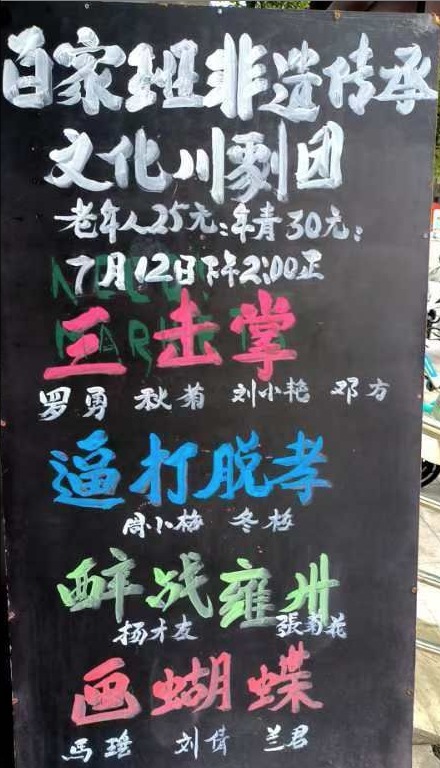 百家班非遗传承
文化川剧团
老年人25元:年青30元:
7月12日下午2:00正
三击掌
罗勇 秋菊 刘小艳 邓方
逼打脱孝
周小梅 冬梅
醉战雍州
扬才友 張菊花
画蝴蝶
馬瑶 刘倩 兰君